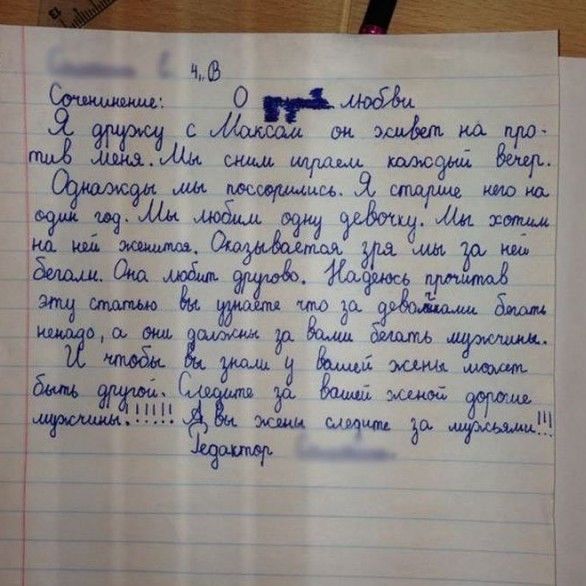 4 „В
Сочининение: О любви
Я дружу с Максом он живет на про-
тив меня. Мы сним играем каждый вечер.
Однажды мы поссорились. Я старше него на
один год. Мы любим одну девочку. Мы хотим
на ней женится. Оказывается зря мы за ней
бегали. Она любит другово. Надеюсь прочитав
эту статью вы узнаете что за девочками бегать
ненадо, а они должны за вами бегать мужчины.
И чтобы вы знали у вашей жены может
быть другой. Следите за вашей женой дорогие
мужчины.!!!!! А вы жены следите за мужьями!!!
Редактор